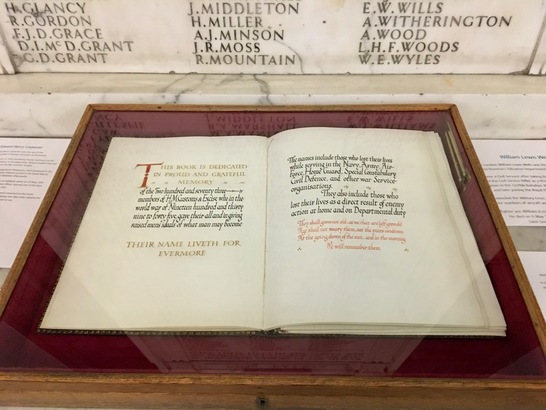 H. GLANCY
R. GORDON
F.J.D. GRACE
D.I. McD. GRANT
C.D. GRANT
J. MIDDLETON
H. MILLER
A.J. MINSON
J.R. MOSS
R. MOUNTAIN
E.W. WILLS
A. WITHERINGTON
A. WOOD
L.H.F. WOODS
W.E. WYLES
THIS BOOK IS DEDICATED
IN PROUD AND GRATEFUL
MEMORY
of the Two hundred and seventy three
members of H.M. Customs & Excise who in the
world war of Nineteen hundred and thirty
nine to forty five, gave their all and in giving
raised men's ideals of what man may become
THEIR NAME LIVETH FOR
EVERMORE
The names include those who lost their lives
while serving in the Navy, Army, Air-
Force, Home Guard, Special Constabulary,
Civil Defence, and other war Service
organisations.
They also include those who
lost their lives as a direct result of enemy
action at home and on Departmental duty
They shall grow not old as we that are left grow old
Age shall not weary them, nor the years condemn
At the going down of the sun, and in the morning
We will remember them.
William Lewis